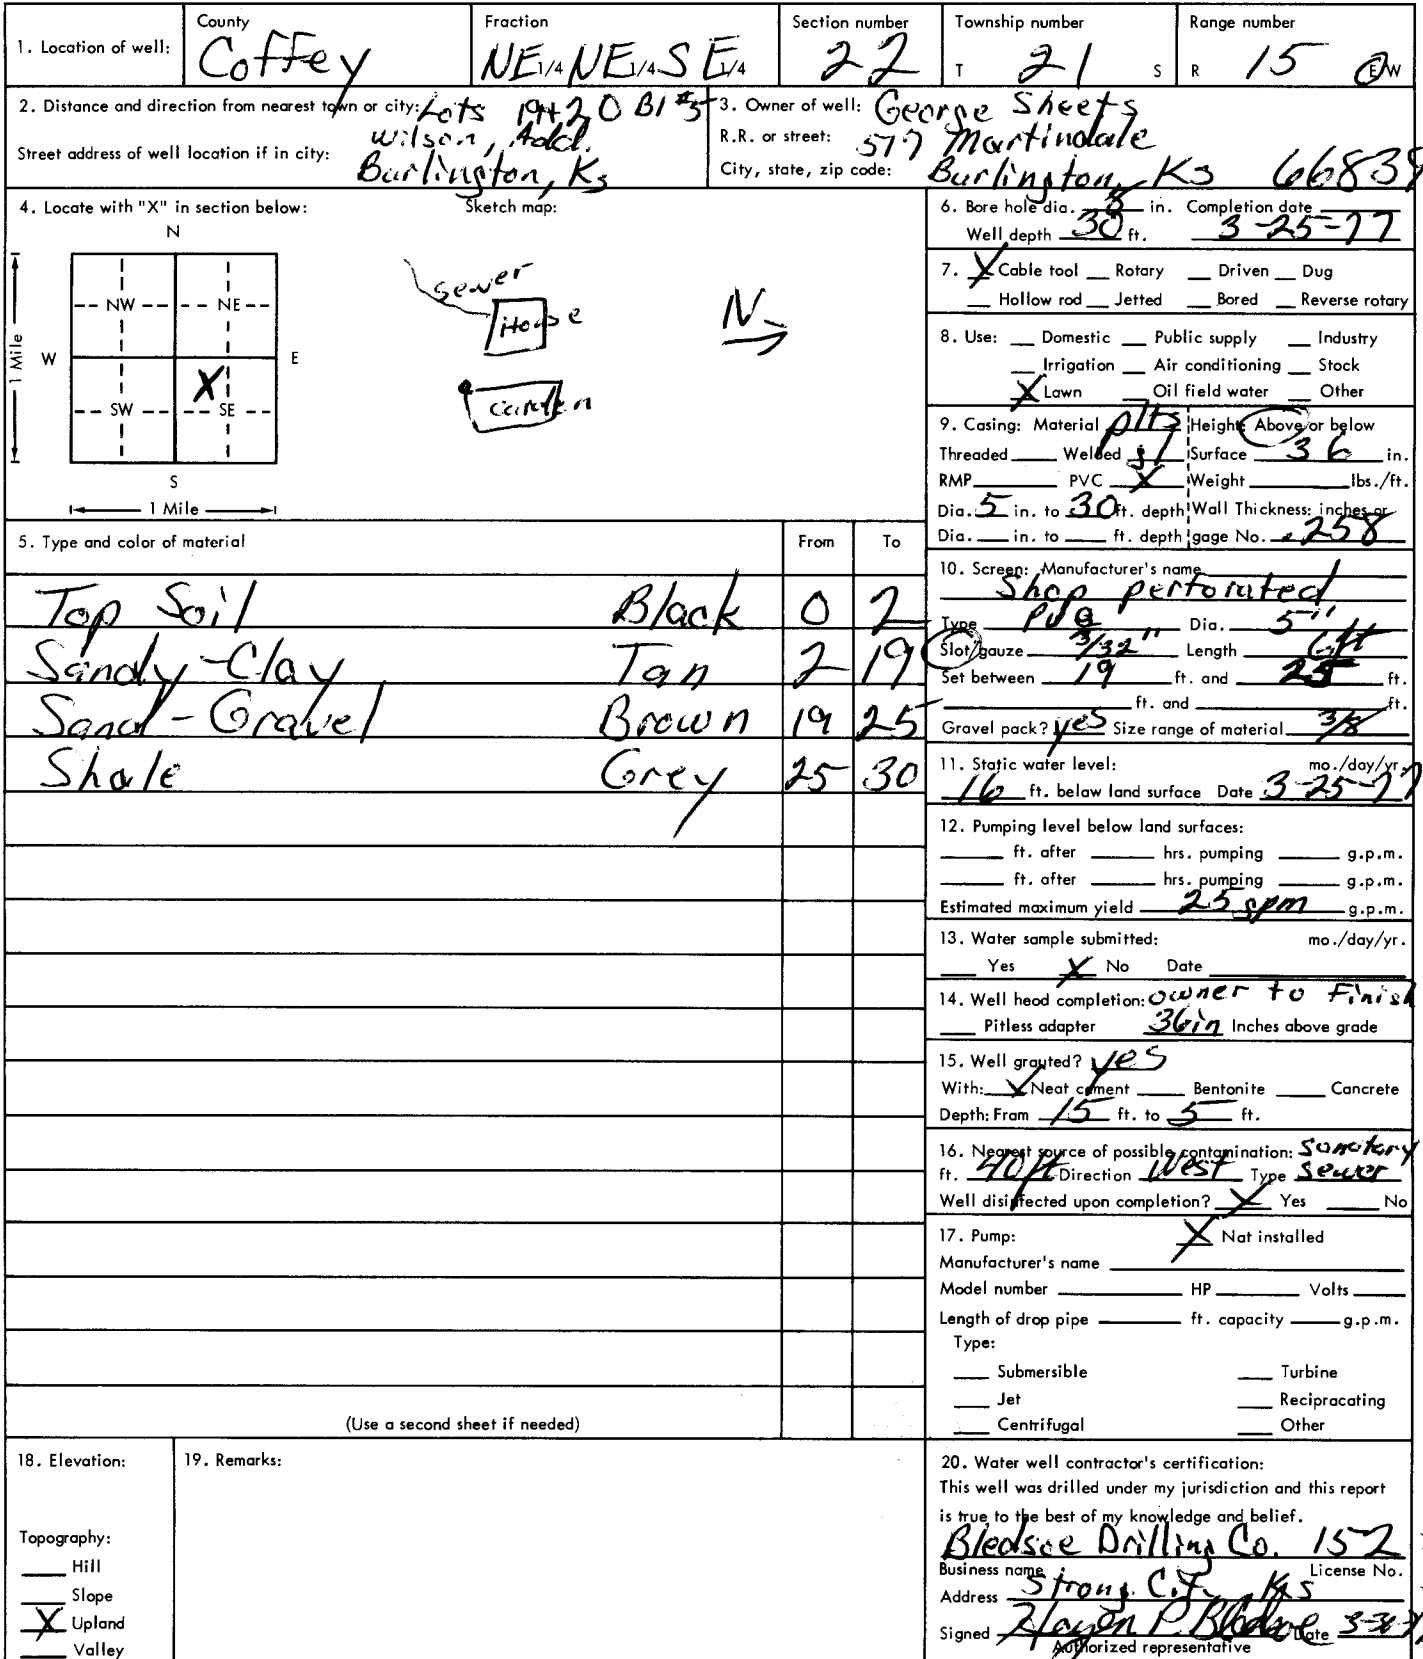 County Fraction Section number Township number Range number
1. Location of well: Coffey NE 1/4 NE 1/4 SE 1/4 22 T 21 S R 15 E/W
2. Distance and direction from nearest town or city: Lots 19+20 Bl #5
Wilson, Add.
Street address of well location if in city:
Burlington, Ks
3. Owner of well: George Sheets
R.R. or street: 577 Martindale
City, state, zip code: Burlington, Ks 66839
4. Locate with "X" in section below: Sketch map:
N
NW NE
W E
X
SW SE
S
1 Mile
1 Mile
Sewer
House
Garden
N
5. Type and color of material From To
Top Soil Black 0 2
Sandy-Clay Tan 2 19
Sand-Gravel Brown 19 25
Shale Grey 25 30
(Use a second sheet if needed)
6. Bore hole dia. 8 in. Completion date
Well depth 30 ft. 3-25-77
7. X Cable tool __ Rotary __ Driven __ Dug
__ Hollow rod __ Jetted __ Bored __ Reverse rotary
8. Use: __ Domestic __ Public supply __ Industry
__ Irrigation __ Air conditioning __ Stock
X Lawn __ Oil field water __ Other
9. Casing: Material plts Height: Above or below
Threaded ____ Welded gl Surface 36 in.
RMP ____ PVC X Weight ____ lbs./ft.
Dia. 5 in. to 30 ft. depth Wall Thickness: inches or
Dia. ___ in. to ___ ft. depth gage No. .258
10. Screen: Manufacturer's name
Shop perforated
Type pvc Dia. 5"
Slot/gauze 3/32" Length 6ft
Set between 19 ft. and 25 ft.
____ ft. and ____ ft.
Gravel pack? yes Size range of material 3/8
11. Static water level: mo./day/yr.
16 ft. below land surface Date 3-25-77
12. Pumping level below land surfaces:
____ ft. after ____ hrs. pumping ____ g.p.m.
____ ft. after ____ hrs. pumping ____ g.p.m.
Estimated maximum yield 25 gpm g.p.m.
13. Water sample submitted: mo./day/yr.
__ Yes X No Date ____
14. Well head completion: owner to Finish
__ Pitless adapter 36in Inches above grade
15. Well grouted? yes
With: X Neat cement ____ Bentonite ____ Concrete
Depth: From 15 ft. to 5 ft.
16. Nearest source of possible contamination: Sanitary
ft. 40ft Direction West Type Sewer
Well disinfected upon completion? X Yes ____ No
17. Pump: X Not installed
Manufacturer's name ____
Model number ____ HP ____ Volts ____
Length of drop pipe ____ ft. capacity ____ g.p.m.
Type:
____ Submersible ____ Turbine
____ Jet ____ Reciprocating
____ Centrifugal ____ Other
18. Elevation: 19. Remarks:
Topography:
____ Hill
____ Slope
X Upland
____ Valley
20. Water well contractor's certification:
This well was drilled under my jurisdiction and this report
is true to the best of my knowledge and belief.
Bledsoe Drilling Co. 152
Business name License No.
Address Strong City Ks
Signed P. Bledsoe Date 3-30-77
Authorized representative